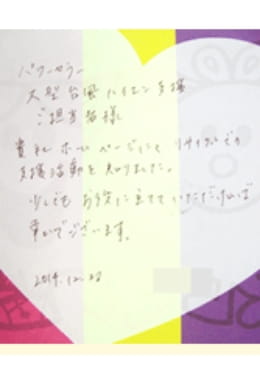 パワーセラー
大型台風ハイエン支援
ご担当者様
貴社ホームページにて リサイクルでの
支援活動を知りました。
少しでも お役に立てて いただければ
幸いでございます。
2014.12.22